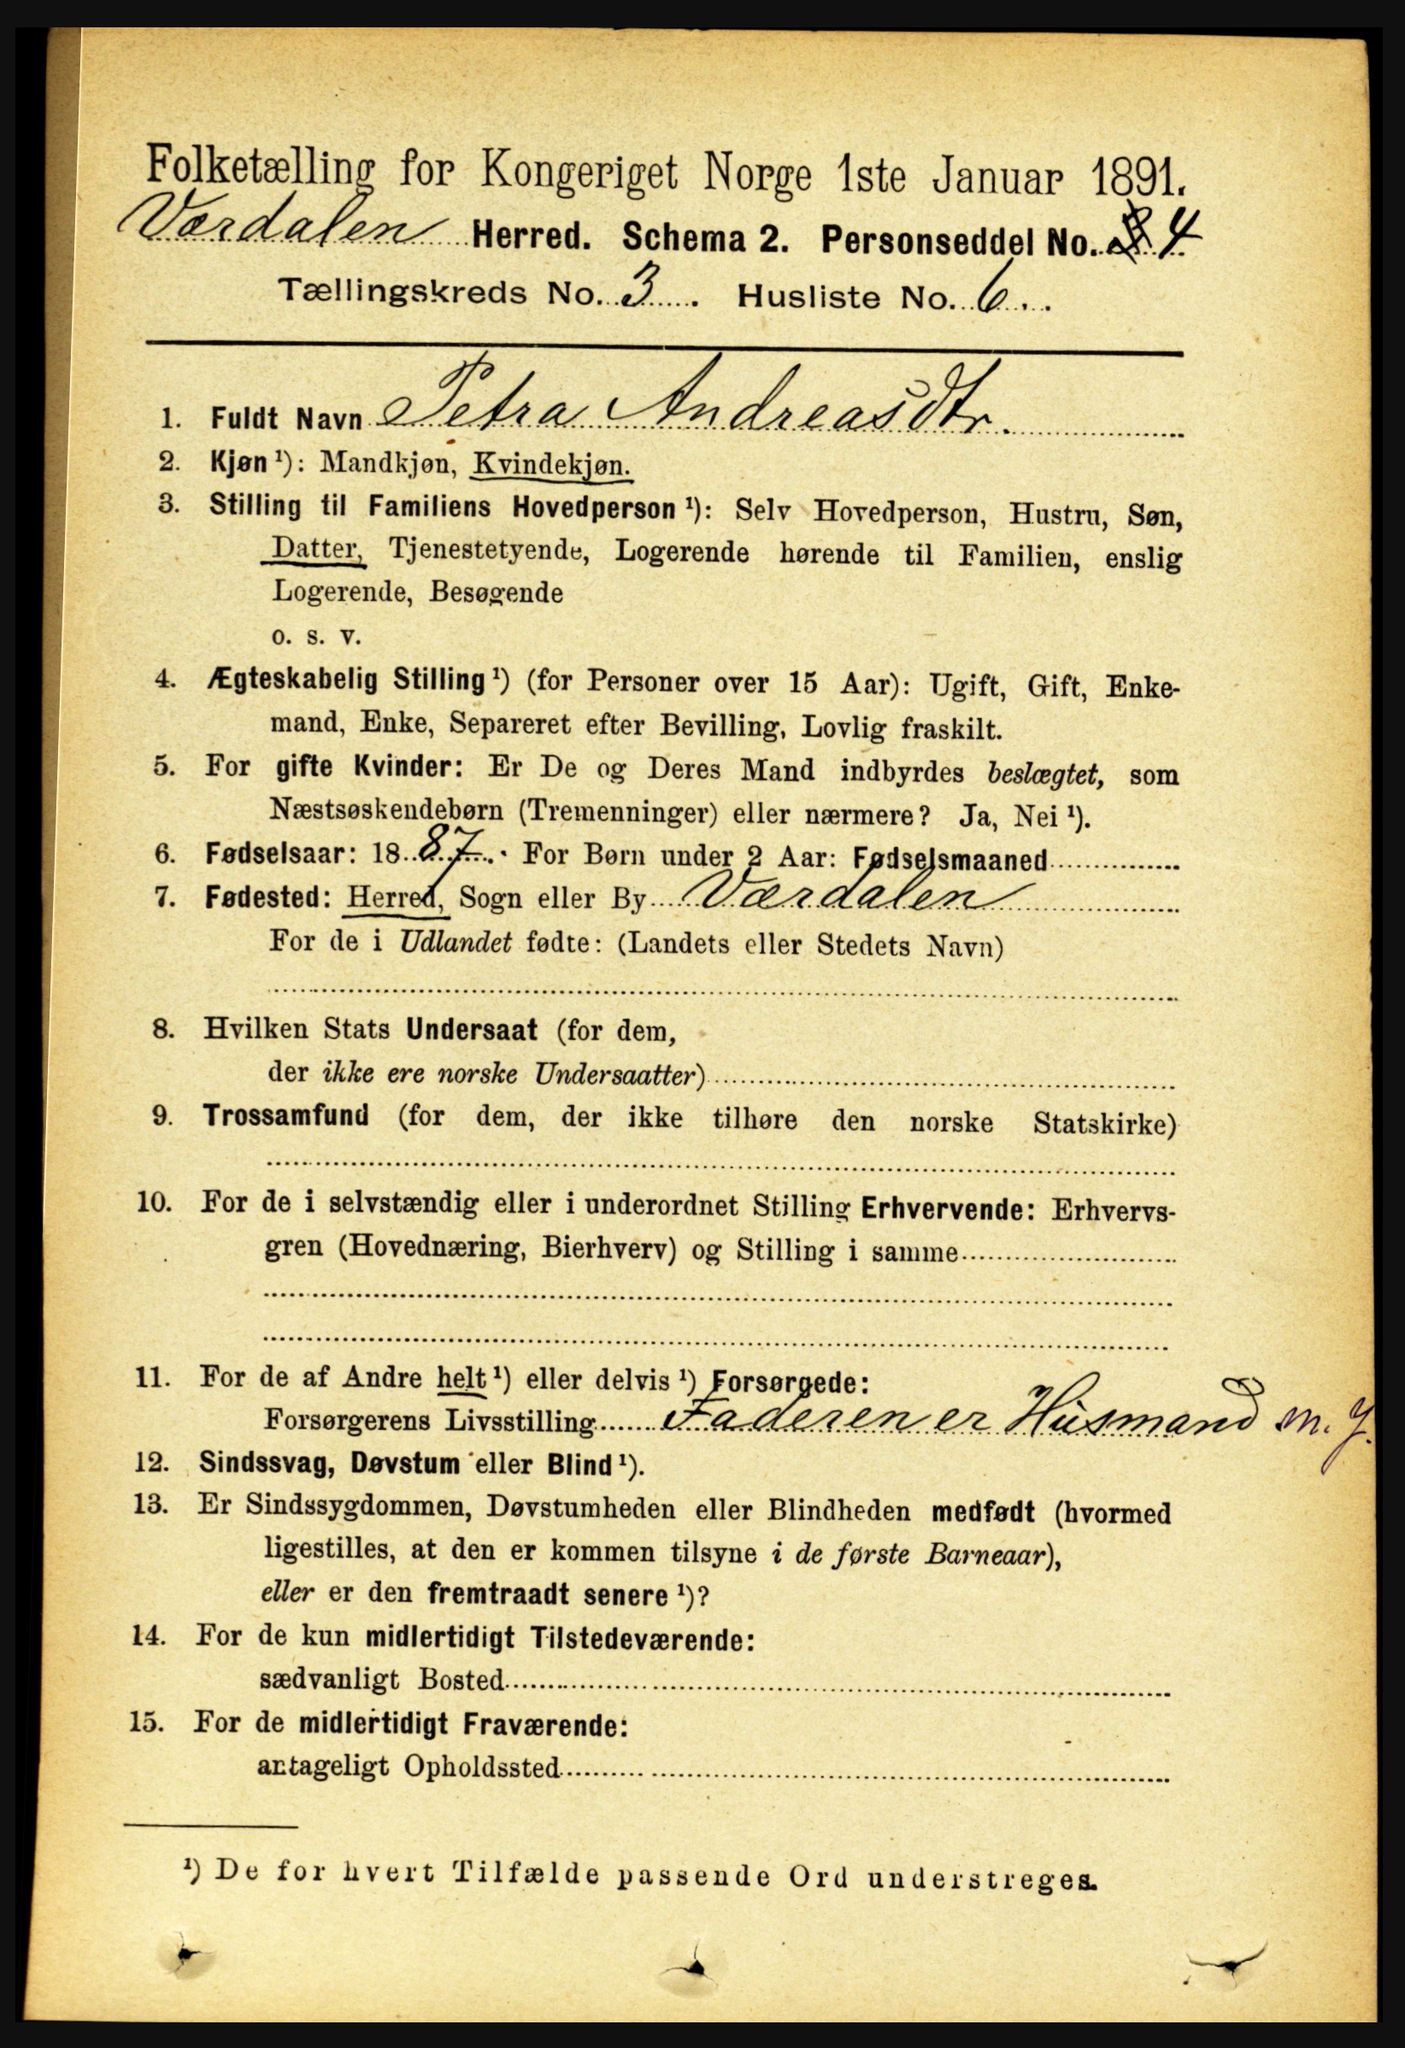 Folketælling for Kongeriget Norge 1ste Januar 1891.
Værdalen Herred. Schema 2. Personseddel No. 4
Tællingskreds No. 3. Husliste No. 6.
1. Fuldt Navn Petra Andreasdtr.
2. Kjøn ¹): Mandkjøn, Kvindekjøn.
3. Stilling til Familiens Hovedperson ¹): Selv Hovedperson, Hustru, Søn,
Datter, Tjenestetyende, Logerende hørende til Familien, enslig
Logerende, Besøgende
o. s. v.
4. Ægteskabelig Stilling ¹) (for Personer over 15 Aar): Ugift, Gift, Enke-
mand, Enke, Separeret efter Bevilling, Lovlig fraskilt.
5. For gifte Kvinder: Er De og Deres Mand indbyrdes beslægtet, som
Næstsøskendebørn (Tremenninger) eller nærmere? Ja, Nei ¹).
6. Fødselsaar: 1887. For Børn under 2 Aar: Fødselsmaaned
7. Fødested: Herred, Sogn eller By Værdalen
For de i Udlandet fødte: (Landets eller Stedets Navn)
8. Hvilken Stats Undersaat (for dem,
der ikke ere norske Undersaatter)
9. Trossamfund (for dem, der ikke tilhøre den norske Statskirke)
10. For de i selvstændig eller i underordnet Stilling Erhvervende: Erhvervs-
gren (Hovednæring, Bierhverv) og Stilling i samme
11. For de af Andre helt ¹) eller delvis ¹) Forsørgede:
Forsørgerens Livsstilling Faderen er Husmand m. J.
12. Sindssvag, Døvstum eller Blind ¹).
13. Er Sindssygdommen, Døvstumheden eller Blindheden medfødt (hvormed
ligestilles, at den er kommen tilsyne i de første Barneaar),
eller er den fremtraadt senere ¹)?
14. For de kun midlertidigt Tilstedeværende:
sædvanligt Bosted
15. For de midlertidigt Fraværende:
antageligt Opholdssted
¹) De for hvert Tilfælde passende Ord understreges.